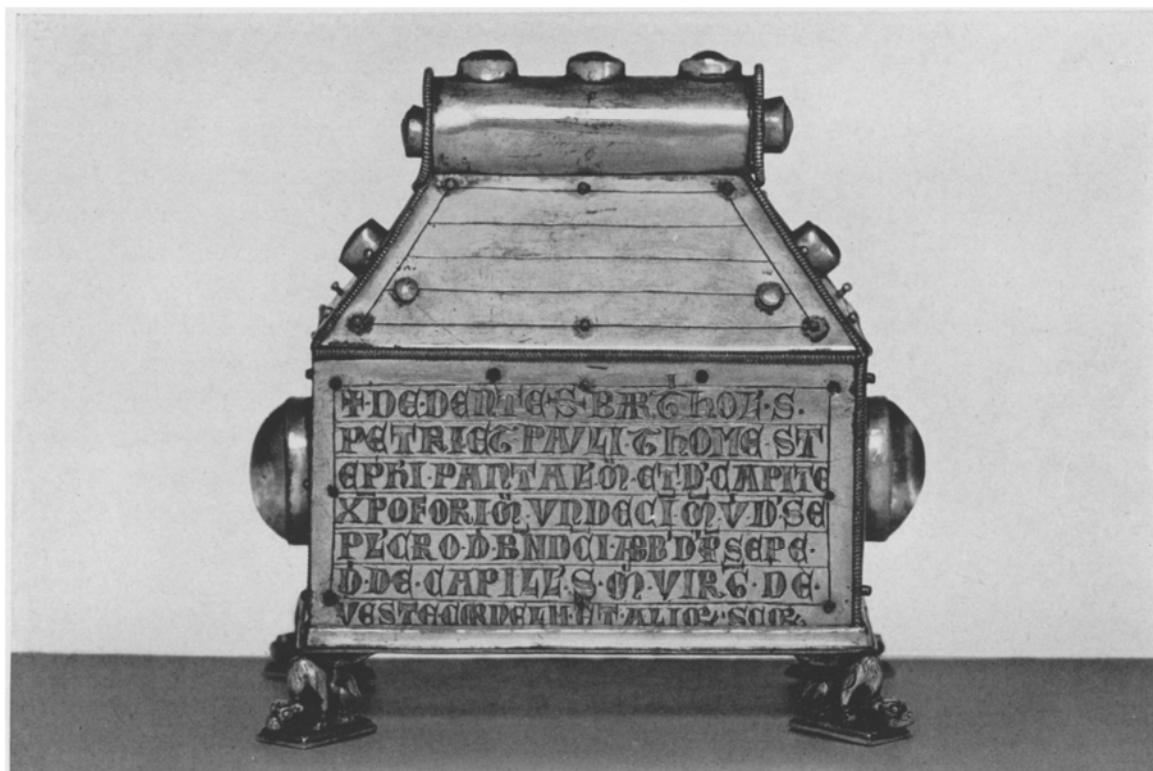 ✠·DE·DENTE·S·BARTHOL·S·
PETRI ET PAVLI·THOME·ST
EPHI·PANTAL·M·ET·D'·CAPITE
XPOFORI M·VNDECI·M·V·D'·SE
PL'CRO·D·
D·DE·CAPILL'·S·M·VIRG·DE·
VESTE CORNELII·ET·ALIOꝜ·SCOꝜ